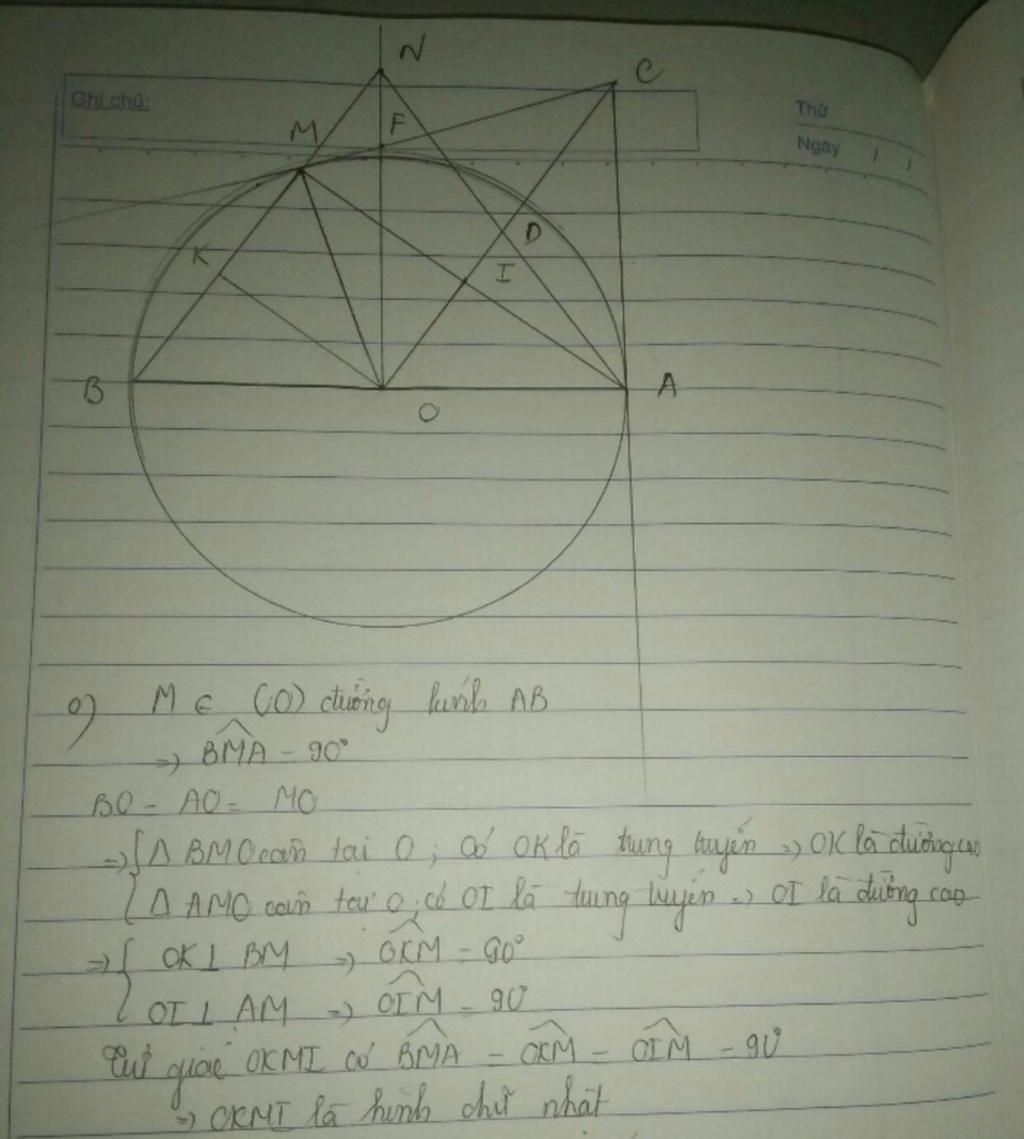 N
C
Ghi chú:
M
F
Thứ
Ngày / /
K
D
I
B
O
A
a) M ∈ (O) đường kính AB
=> BMA = 90°
BO = AO = MO
=> { Δ BMO cân tại O; có OK là trung tuyến => OK là đường cao
Δ AMO cân tại O, có OI là trung tuyến => OI là đường cao
=> { OK ⊥ BM => OKM = 90°
OI ⊥ AM => OIM = 90°
Tứ giác OKMI có BMA = OKM = OIM = 90°
=> OKMI là hình chữ nhật